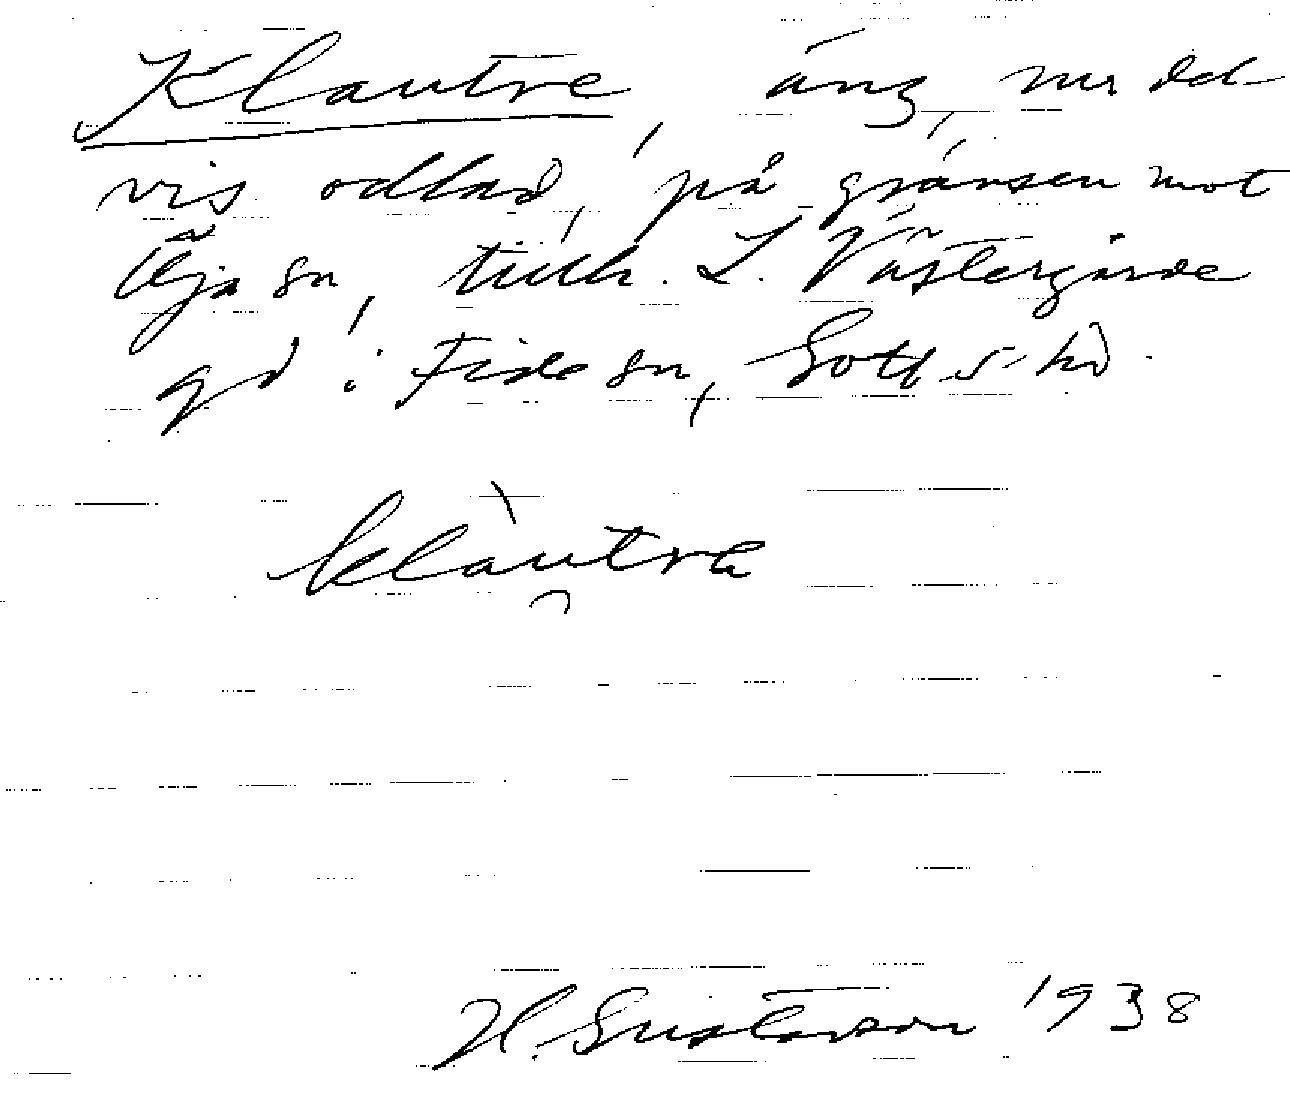 Klautre, äng, nu del
vis odlad, på gränsen mot
Öja sn, tillh. L. Västergårde
gd i Fide sn, Gotl s. hd.
klàutra
H. Gustavson 1938